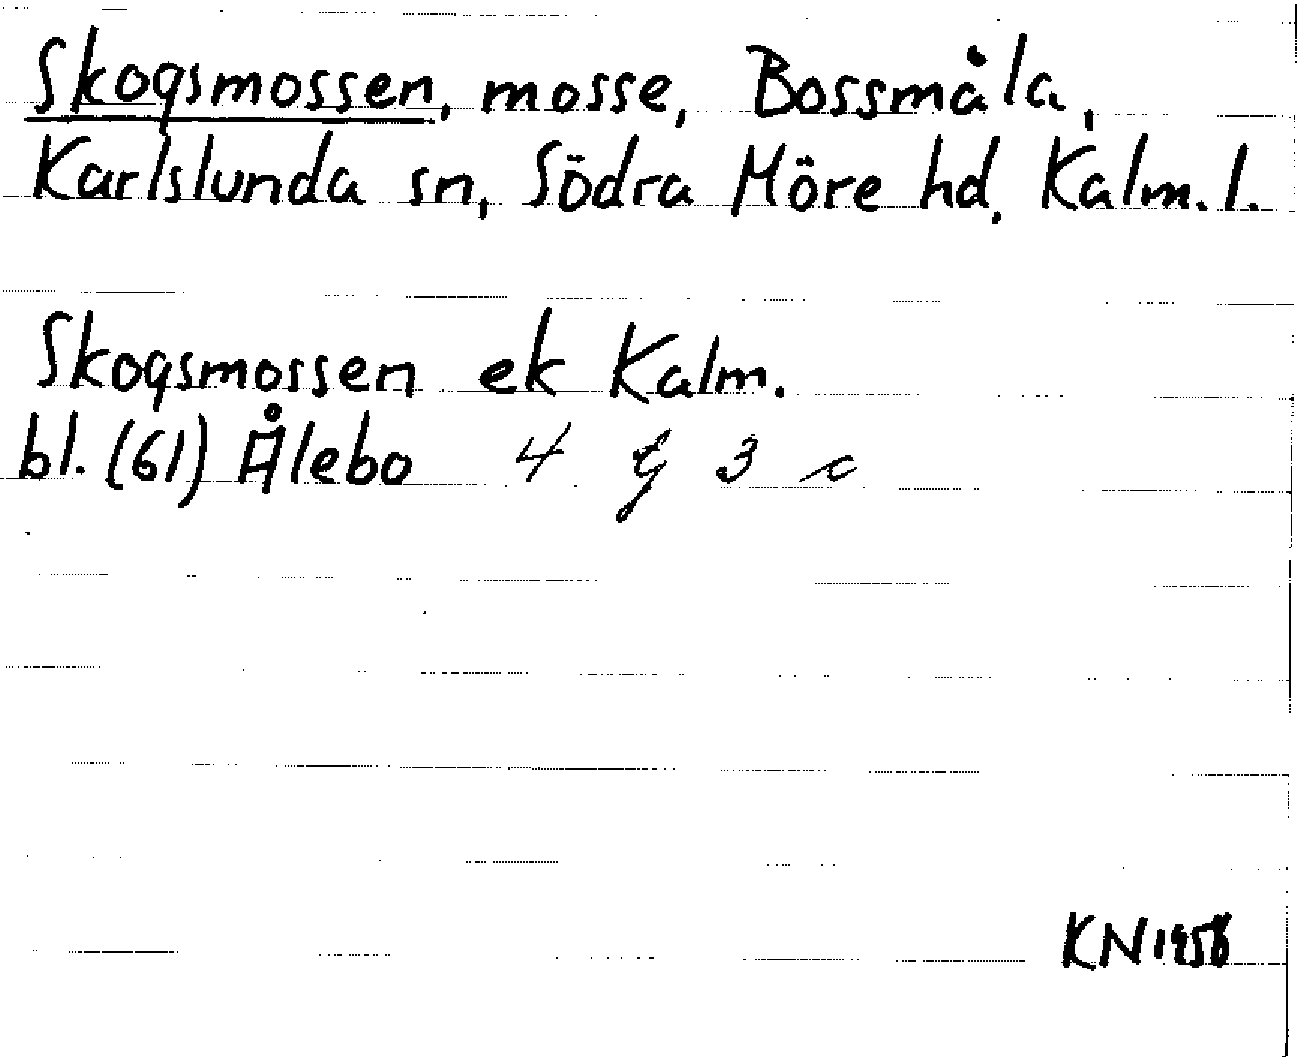 Skogsmossen, mosse, Bossmåla,
Karlslunda sn, Södra Möre hd, Kalm. l.
Skogsmossen ek Kalm.
bl. (61) Ålebo 4 g 3 c
KN 1958